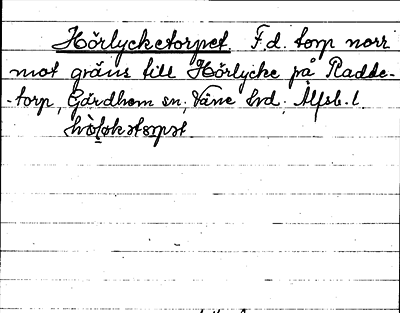 Hörlycketorpet. F.d. torp norr
mot gräns till Hörlycke på Radde-
-torp, Gärdhem sn, Väne hd, Älfsb. l.